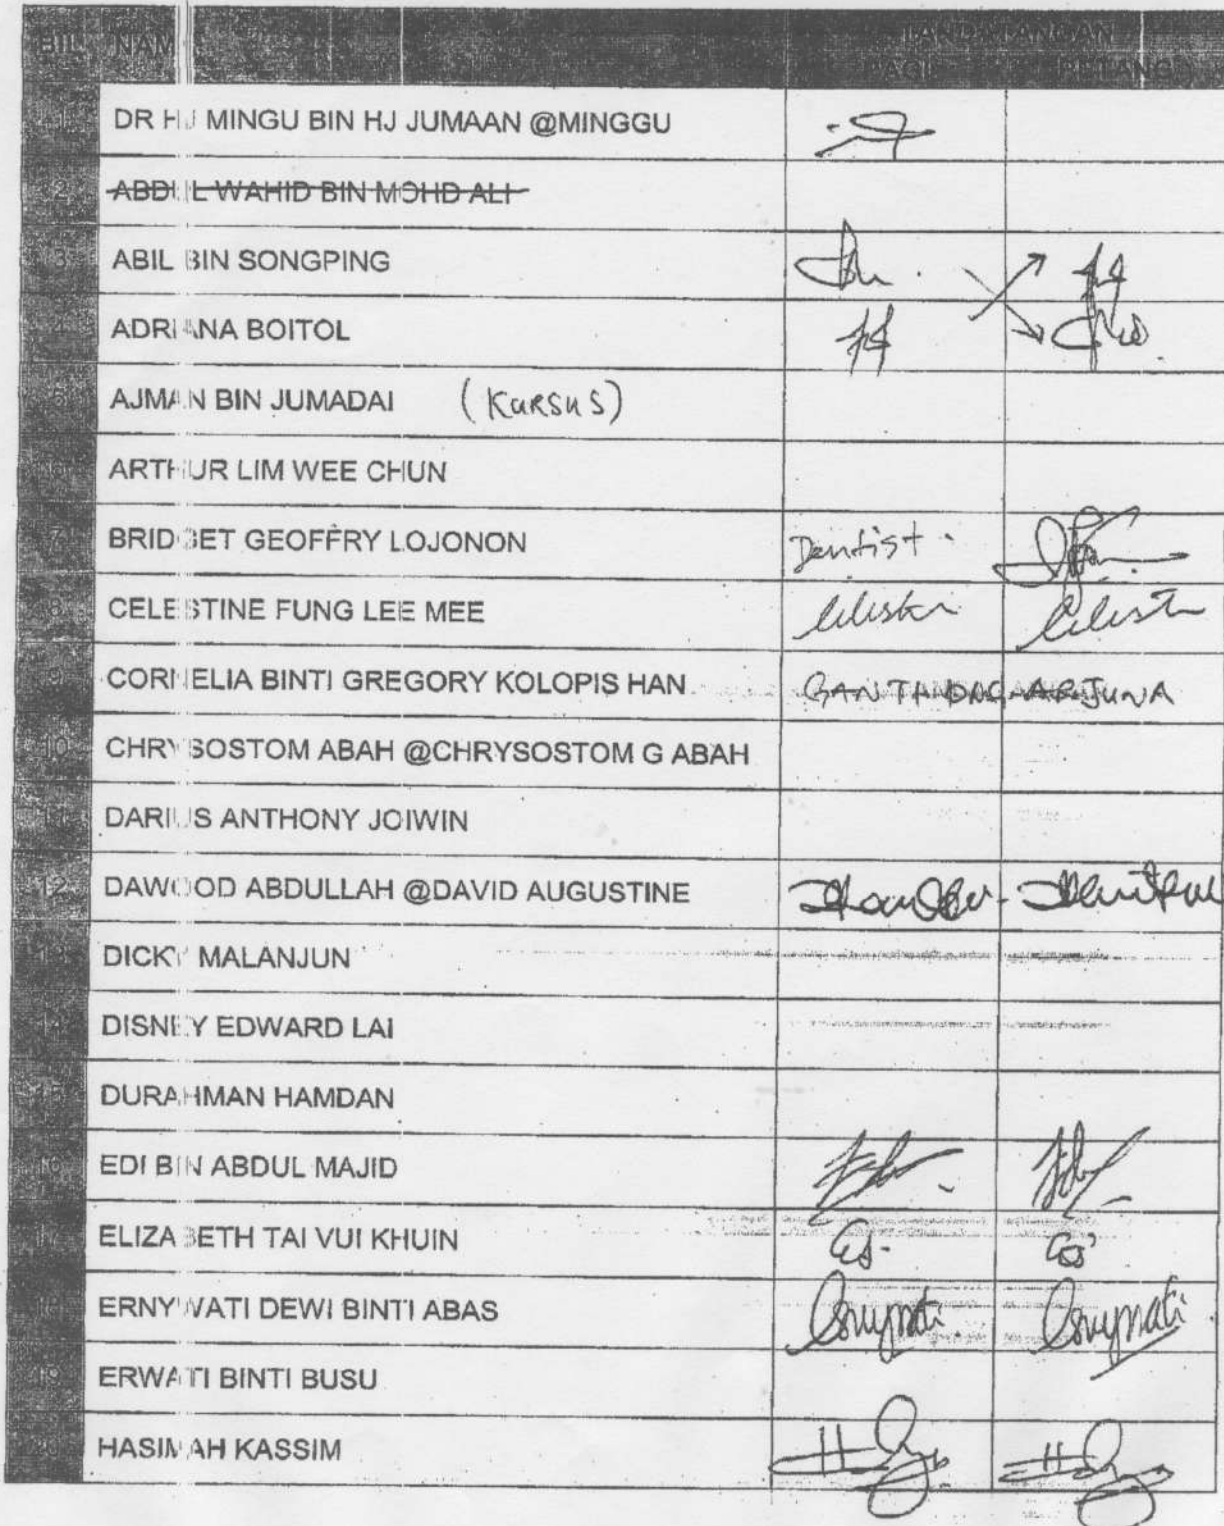 BIL NAMA TANDATANGAN
PAGI PETANG
1 DR HJ MINGU BIN HJ JUMAAN @MINGGU
2 ABDUL WAHID BIN MOHD ALI
3 ABIL BIN SONGPING
4 ADRIANA BOITOL
5 AJMAN BIN JUMADAI (KURSUS)
6 ARTHUR LIM WEE CHUN
7 BRIDGET GEOFFRY LOJONON Dentist.
8 CELESTINE FUNG LEE MEE
9 CORNELIA BINTI GREGORY KOLOPIS HAN GANTI ARJUNA
10 CHRYSOSTOM ABAH @CHRYSOSTOM G ABAH
11 DARIUS ANTHONY JOIWIN
12 DAWOOD ABDULLAH @DAVID AUGUSTINE
13 DICKY MALANJUN
14 DISNEY EDWARD LAI
15 DURAHMAN HAMDAN
16 EDI BIN ABDUL MAJID
17 ELIZABETH TAI VUI KHUIN
18 ERNYWATI DEWI BINTI ABAS
19 ERWATI BINTI BUSU
20 HASIMAH KASSIM